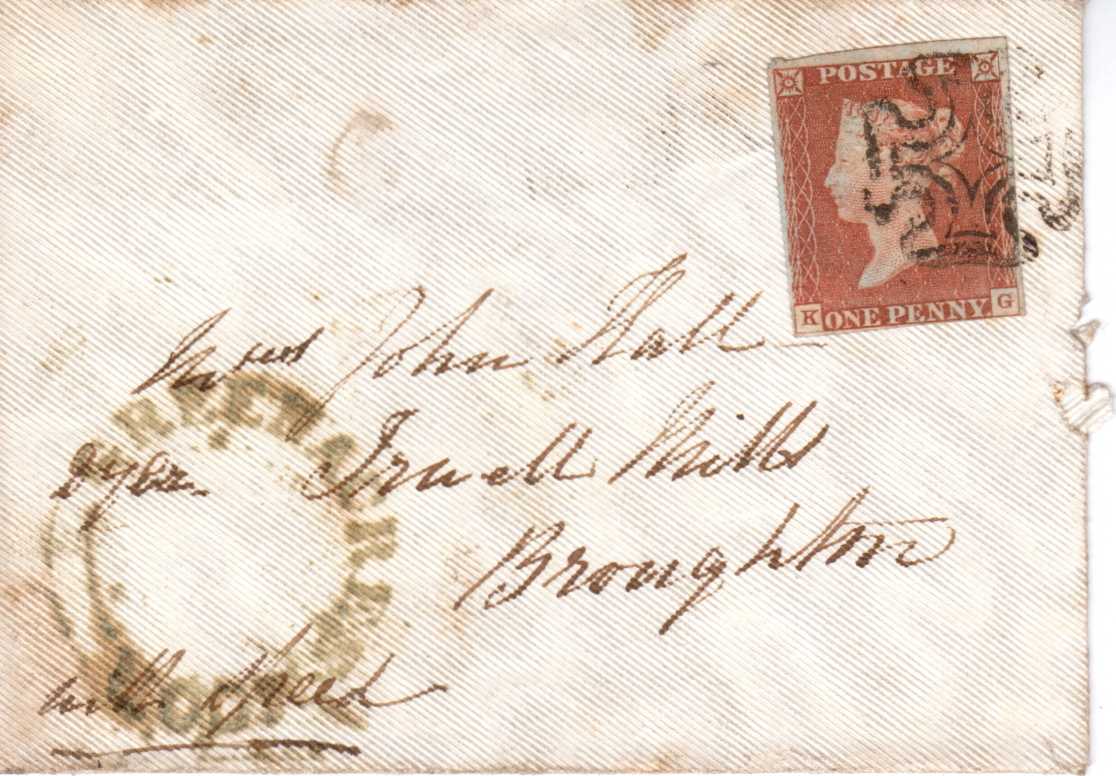 POSTAGE
K ONE PENNY G
John Hall
Dyer Irwell Mills
Broughton
with Speed